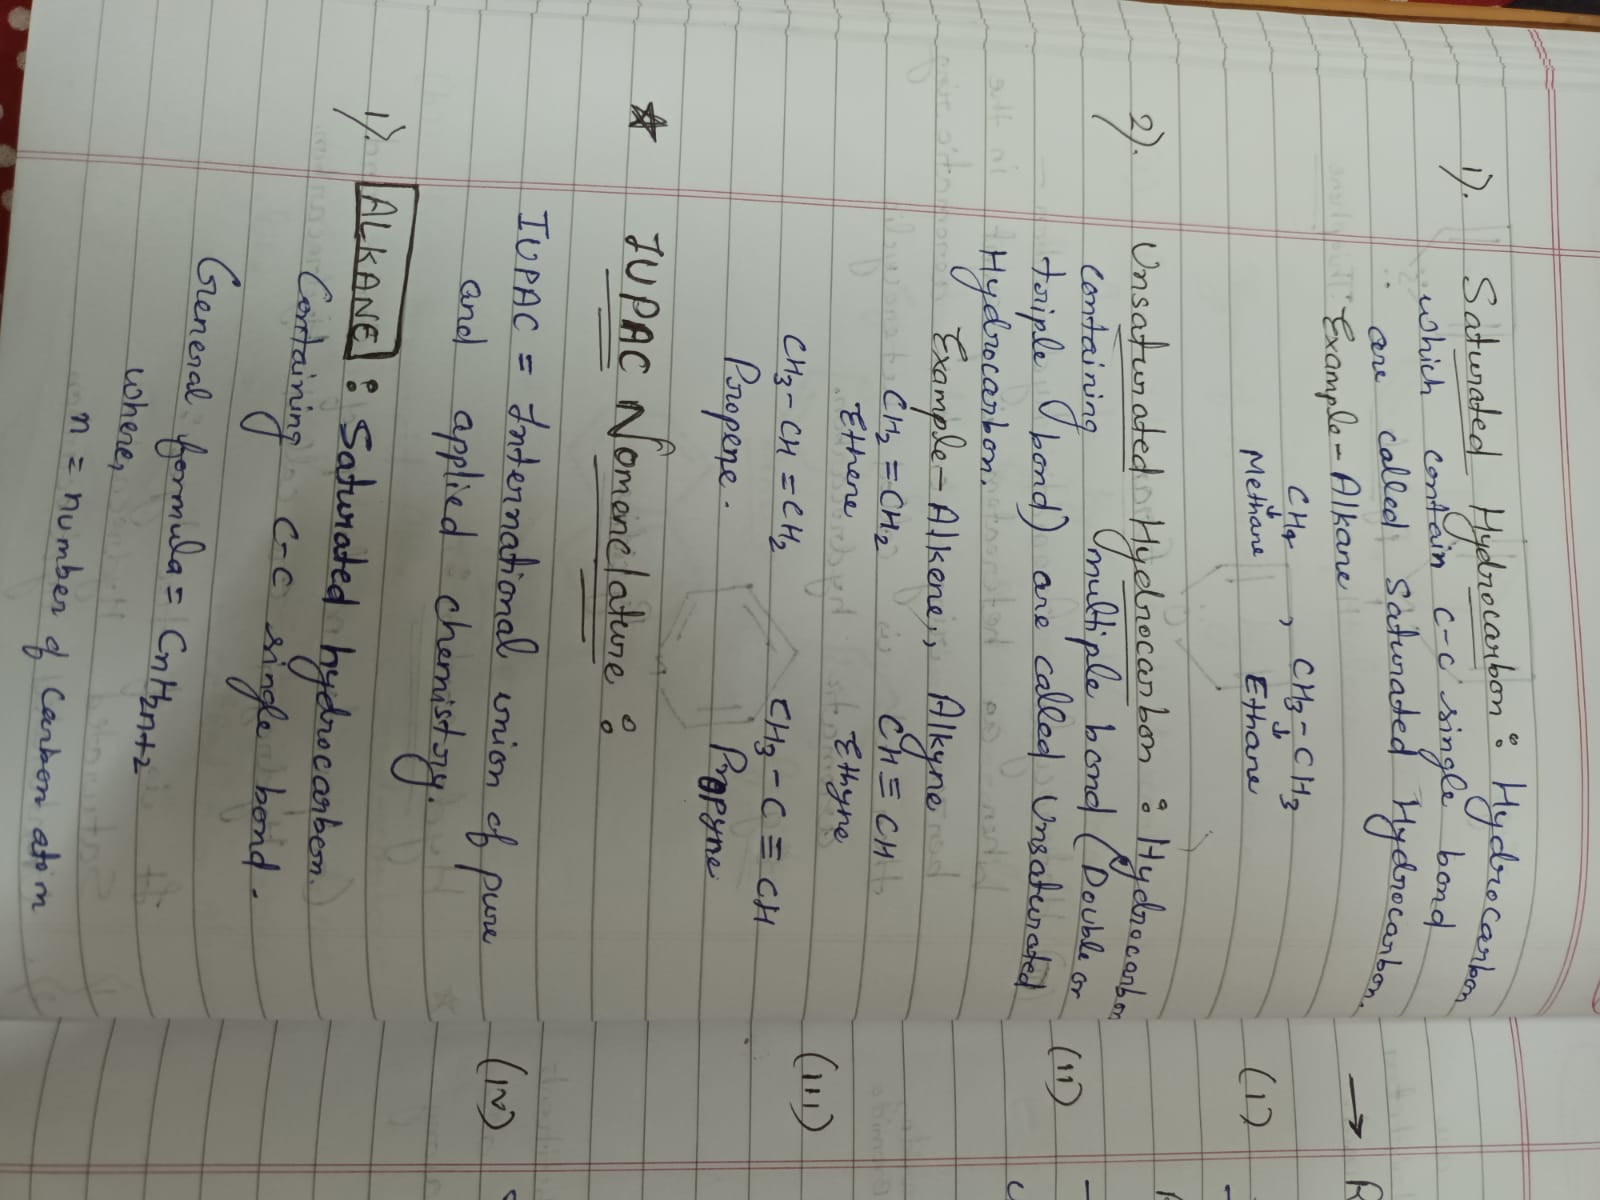 1). Saturated Hydrocarbon : Hydrocarbon
which contain C-C single bond
are called Saturated Hydrocarbon.
Example - Alkane
CH4 , CH3 - CH3
↓ ↓
Methane Ethane
2). Unsaturated Hydrocarbon : Hydrocarbon
containing multiple bond (Double or
triple bond) are called Unsaturated
Hydrocarbon.
Example - Alkene, Alkyne
CH2 = CH2 CH ≡ CH
Ethene Ethyne
CH3 - CH = CH2 CH3 - C ≡ CH
Propene. Propyne
★ IUPAC Nomenclature :
IUPAC = International union of pure
and applied chemistry.
1). ALKANE : Saturated hydrocarbon.
Containing C-C single bond.
General formula = CnH2n+2
where,
n = number of carbon atom
→
(I)
(II)
(III)
(IV)